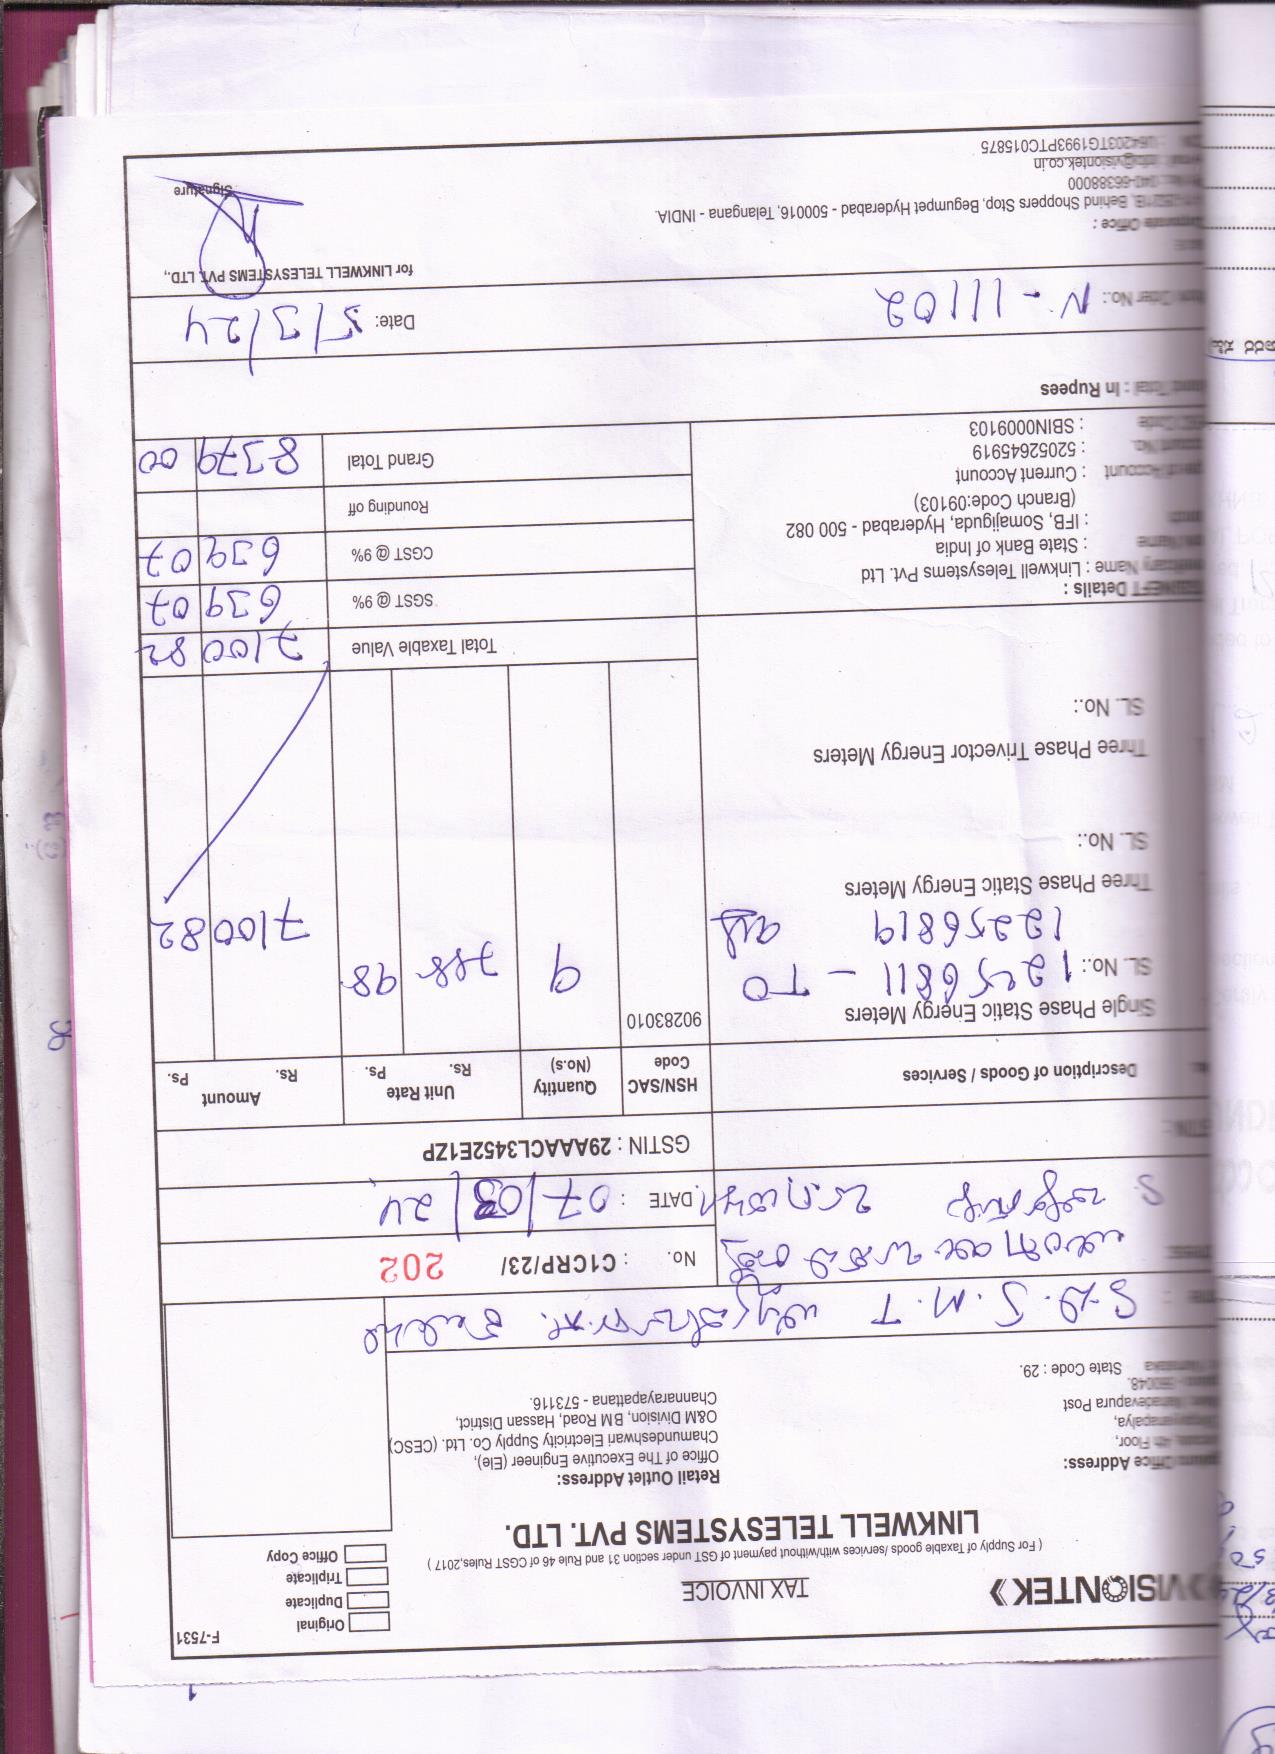 F-7531
VISIONTEK
TAX INVOICE
Original
Duplicate
Triplicate
Office Copy
( For Supply of Taxable goods /services with/without payment of GST under section 31 and Rule 46 of CGST Rules,2017 )
LINKWELL TELESYSTEMS PVT. LTD.
Office Address:
4th Floor,
Post
State Code : 29.
Retail Outlet Address:
Office of The Executive Engineer (Ele),
Chamundeshwari Electricity Supply Co. Ltd. (CESC)
O&M Division, BM Road, Hassan District,
Channarayapattana - 573116.
No. : C1CRP/23/ 202
DATE : 07/03/24
GSTIN : 29AAACL3452E1ZP
Description of Goods / Services
HSN/SAC Code
Quantity (No.s)
Unit Rate Rs. Ps.
Amount Rs. Ps.
Single Phase Static Energy Meters
90283010
SL. No.: 12256811 - TO
12256819
9 788 98 7100 82
Three Phase Static Energy Meters
SL. No.:
Three Phase Trivector Energy Meters
SL. No.:
Total Taxable Value 7100 82
SGST @ 9% 639 07
CGST @ 9% 639 07
Rounding off
Grand Total 8379 00
Details :
Name : Linkwell Telesystems Pvt. Ltd
: State Bank of India
: IFB, Somajiguda, Hyderabad - 500 082
(Branch Code:09103)
: Current Account
: 52052645919
: SBIN0009103
Total : In Rupees
Order No.: N - 11102
Date: 5/3/24
for LINKWELL TELESYSTEMS PVT. LTD.,
Office :
Behind Shoppers Stop, Begumpet Hyderabad - 500016, Telangana - INDIA.
040-66388000
info@visiontek.co.in
U64203TG1993PTC015875
Signature